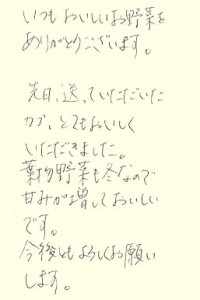 いつもおいしいお野菜を
ありがとうございます。
先日、送っていただいた
カブ、とてもおいしく
いただきました。
葉物野菜も冬なので
甘みが増しておいしい
です。
今後ともよろしくお願い
します。